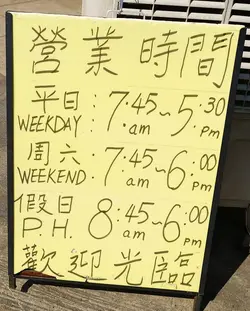 營業時間
平日 : 7:45~5:30
WEEKDAY am pm
周六 : 7:45~6:00
WEEKEND am pm
假日 8:45~6:00
P.H. am pm
歡迎光臨